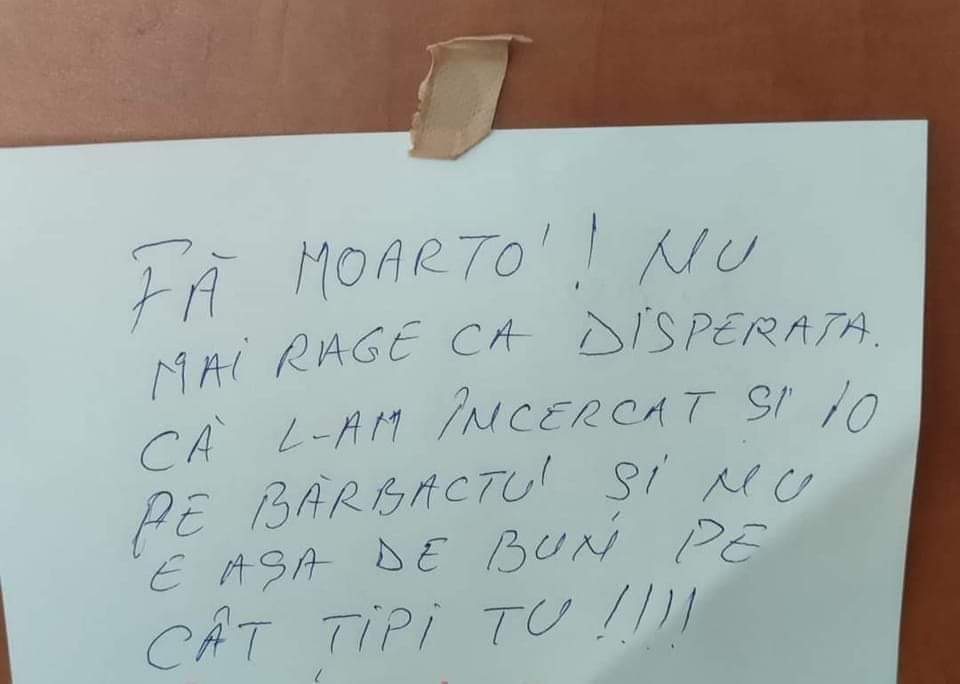 FĂ MOARTO'! NU
MAI RAGE CA DISPERATA.
CĂ L-AM ÎNCERCAT ȘI IO
PE BĂRBACTU' ȘI NU
E AȘA DE BUN PE
CÂT ȚIPI TU!!!!